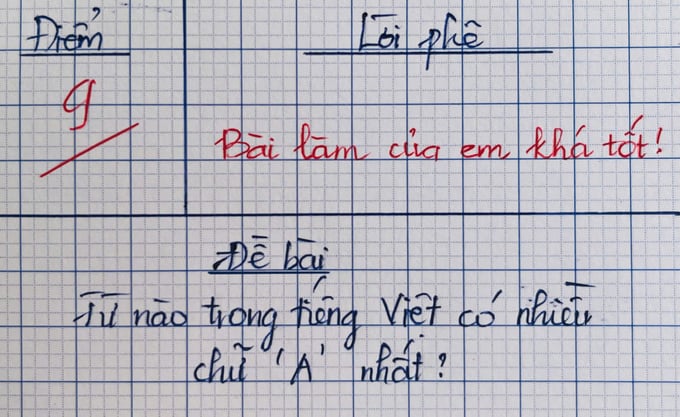 Điểm
Lời phê
9
Bài làm của em khá tốt!
Đề bài
Từ nào trong tiếng Việt có nhiều
chữ 'A' nhất?